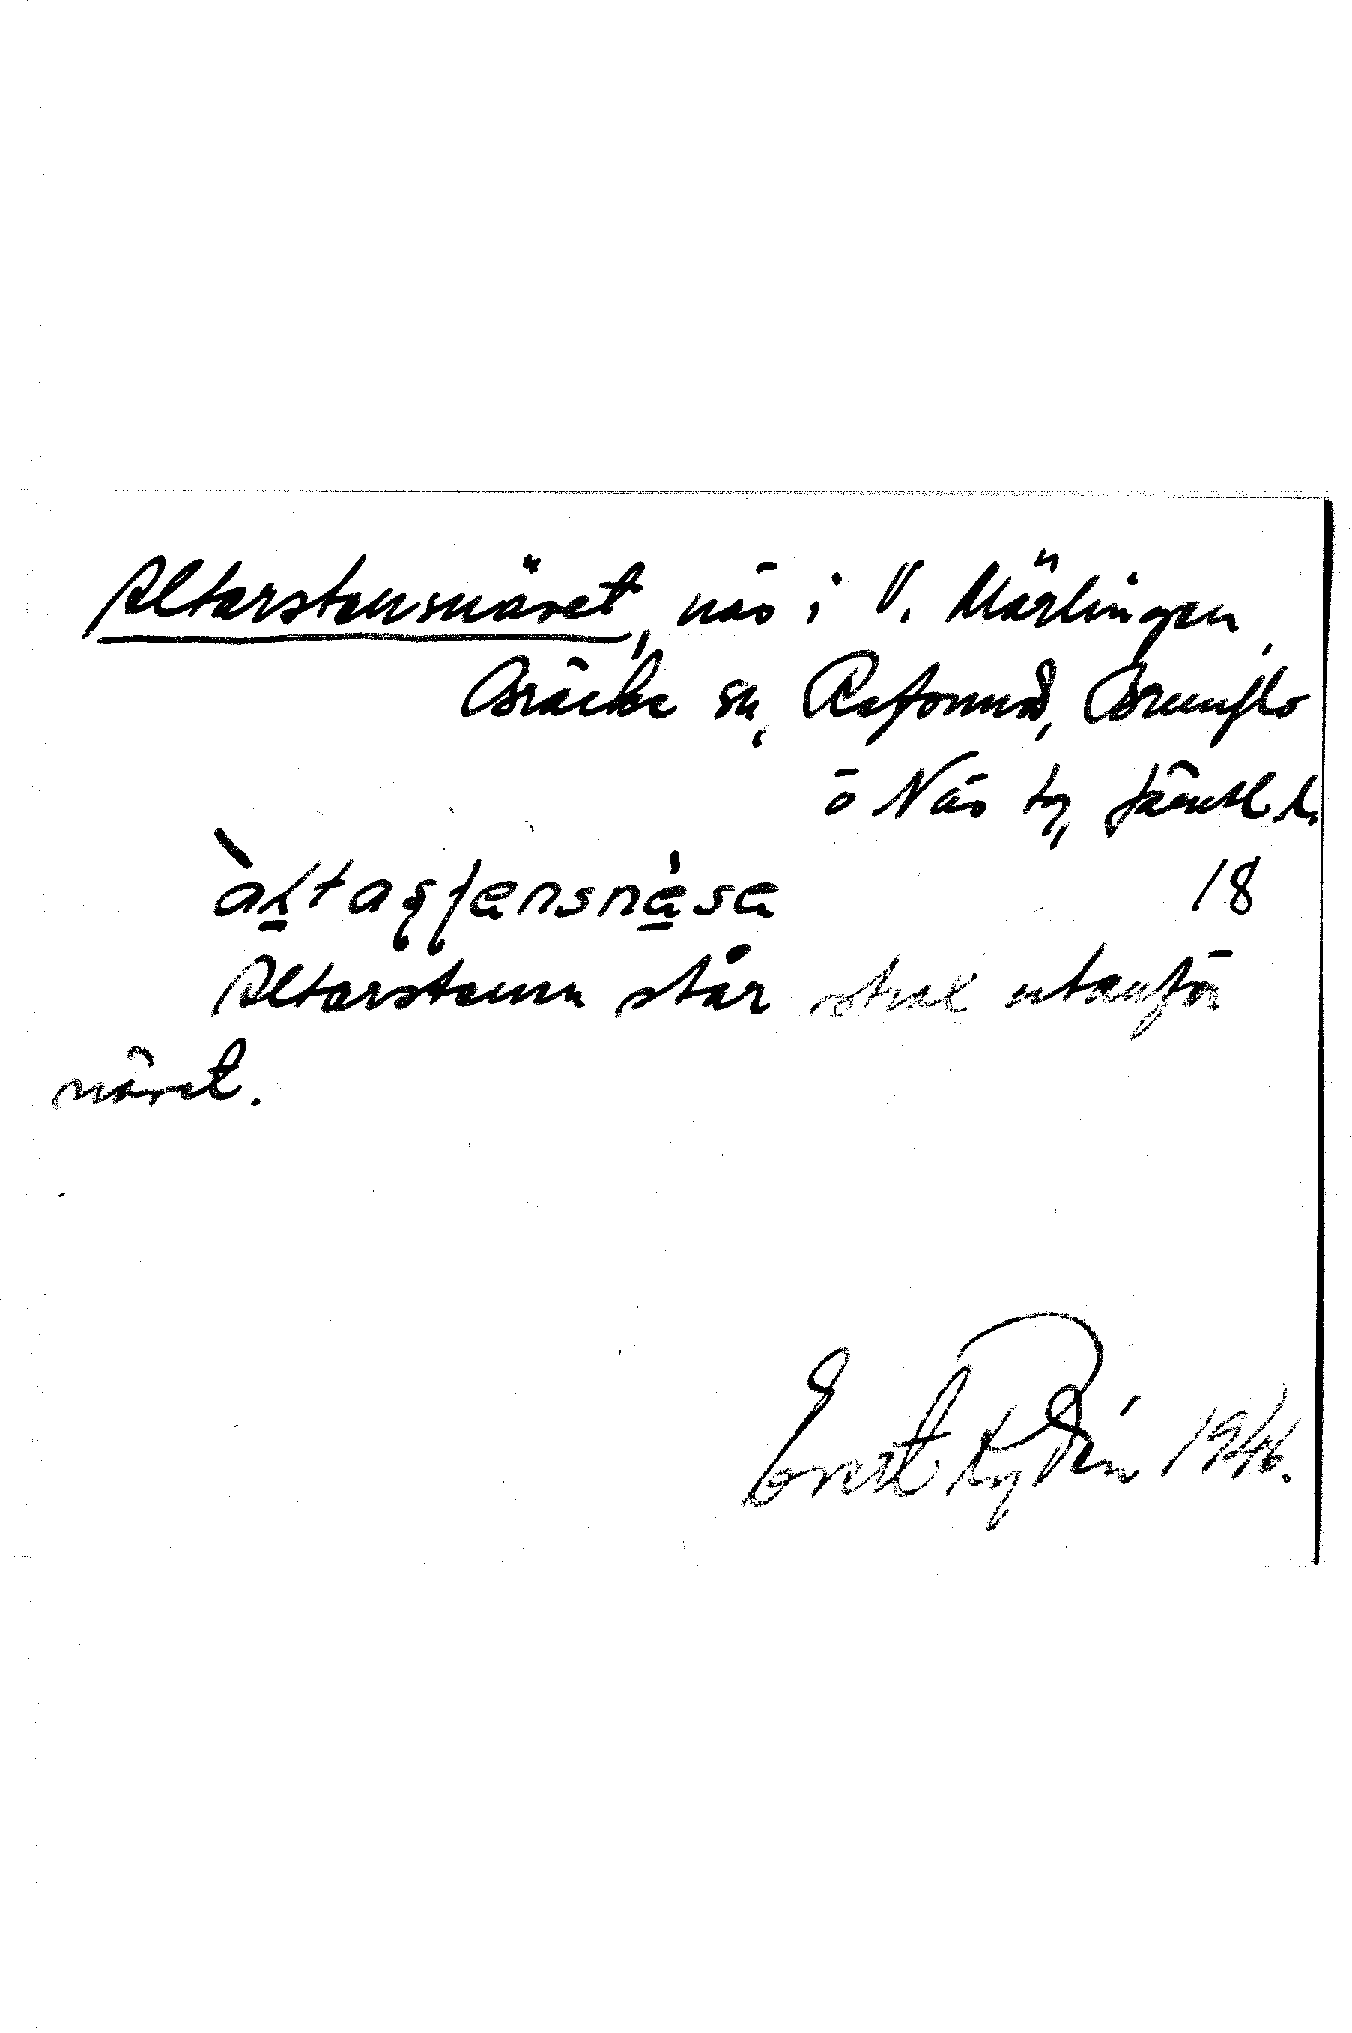 Altarstensnäset, näs i V. Märlingen,
Bräcke sn, Refsund, Brunflo
o Näs tg, Jämtl. l.
18
Altarstenen står strax utanför
näset.
Evert Rydén 1946.